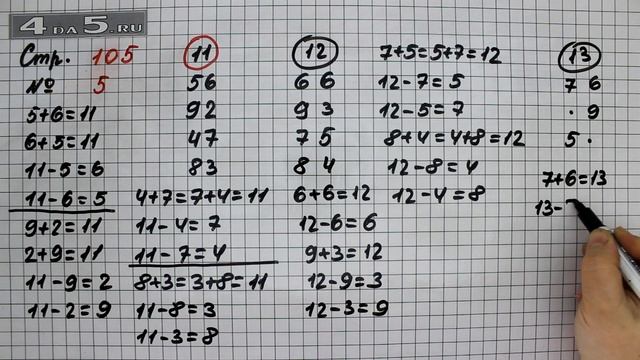 4 DA 5.RU
Стр. 105
№ 5
5+6=11
6+5=11
11-5=6
11-6=5
9+2=11
2+9=11
11-9=2
11-2=9
11
56
92
47
83
4+7=7+4=11
11-4=7
11-7=4
8+3=3+8=11
11-8=3
11-3=8
12
6 6
9 3
7 5
8 4
6+6=12
12-6=6
9+3=12
12-9=3
12-3=9
7+5=5+7=12
12-7=5
12-5=7
8+4=4+8=12
12-8=4
12-4=8
13
7 6
· 9
5 ·
7+6=13
13-